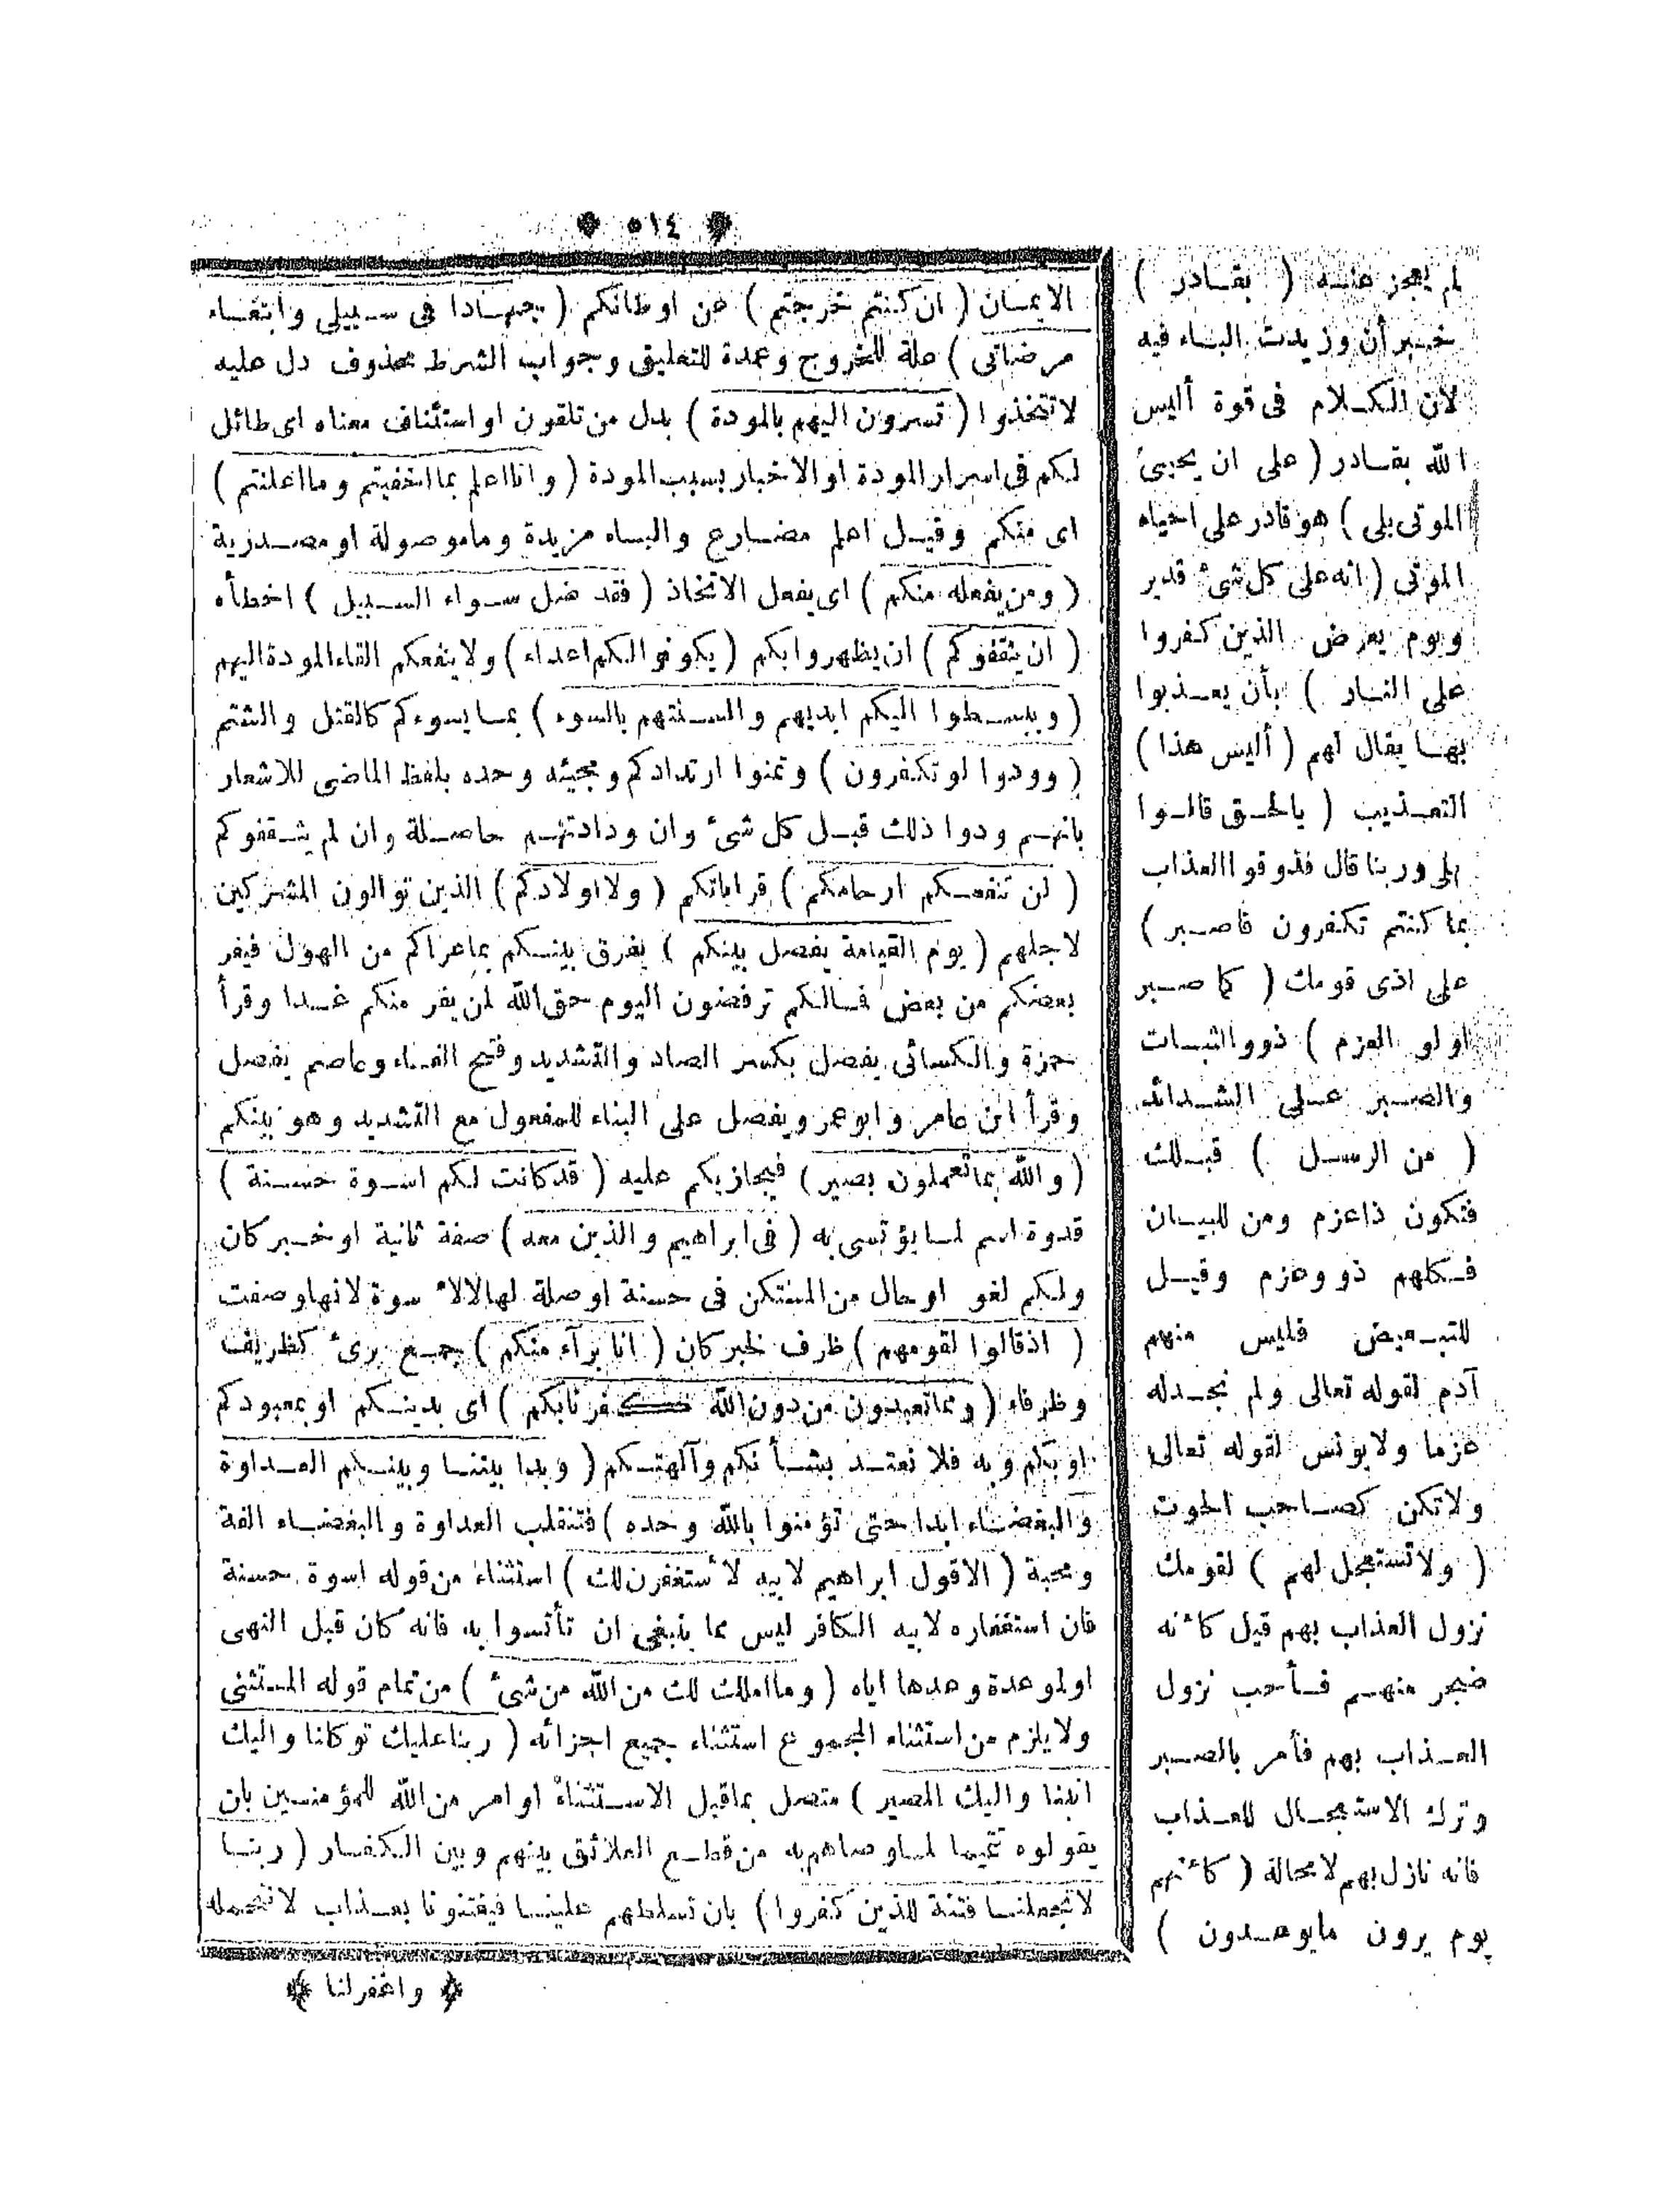 ﴿ ٥١٤ ﴾
الايمـان ( ان كنتم خرجتم ) عن اوطانكم ( جهـادا فى سـبيلى وابتغـاء
مرضاتى ) علة للخروج وعمدة للتعليق وجواب الشرط محذوف دل عليه
لاتتخذوا ( تسرون اليهم بالمودة ) بدل من تلقون او استئناف معناه اى طائل
لكم فى اسرار المودة او الاخبار بسبب المودة ( وانااعلم بمااخفيتم ومااعلنتم )
اى منكم وقيـل اعلم مضـارع والبـاء مزيدة وماموصولة او مصـدرية
( ومن يفعله منكم ) اى يفعل الاتخاذ ( فقد ضل سـواء السـبيل ) اخطأه
( ان يثقفوكم ) ان يظهروا بكم ( يكونوالكم اعداء ) ولاينفعكم القاءالمودةاليهم
( ويبسـطوا اليكم ايديهم والسـنتهم بالسوء ) بمـايسوءكم كالقتل والشتم
( وودوا لوتكفرون ) وتمنوا ارتدادكم ومجيئه وحده بلفظ الماضى للاشعار
بانهـم ودوا ذلك قبـل كل شىء وان ودادتهـم حاصـلة وان لم يثـقفوكم
( لن تنفعـكم ارحامكم ) قراباتكم ( ولااولادكم ) الذين توالون المشركين
لاجلهم ( يوم القيامة يفصل بينكم ) يفرق بينـكم بماعراكم من الهول فيفر
بعضكم من بعض فـالكم ترفضون اليوم حق الله لمن يفر منكم غـدا وقرأ
حمزة والكسائى يفصل بكسر الصاد والتشديد وفتح الفـاء وعاصم يفصل
وقرأ ابن عامر وابوعمرو يفصل على البناء للمفعول مع التشديد وهو بينكم
( والله بماتعملون بصير ) فيجازيكم عليه ( قدكانت لكم اسـوة حسـنة )
قدوة اسم لمـايؤتسى به ( فى ابراهيم والذين معه ) صفة ثانية او خـبركان
ولكم لغو اوحال من المستكن فى حسنة اوصلة لهالالاسوة لانهاوصفت
( اذقالوا لقومهم ) ظرف لخبركان ( انا برآء منكم ) جمـع برىء كظريف
وظرفاء ( ومماتعبدون من دون الله كفرنابكم ) اى بدينـكم اوبمعبودكم
اوبكم وبه فلا نعتـد بشـأنكم وآلهتـكم ( وبدا بيننـا وبينـكم العـداوة
والبغضـاء ابدا حتى تؤمنوا بالله وحده ) فتنقلب العداوة والبغضـاء الفة
ومحبة ( الاقول ابراهيم لابيه لأستغفرن لك ) استثناء من قوله اسوة حسنة
فان استغفاره لابيه الكافر ليس مما ينبغى ان تأتسوا به فانه كان قبل النهى
اولموعدة وعدها اياه ( وماامللك لك من الله من شىء ) من تمام قوله المستثنى
ولايلزم من استثناء المجموع استثناء جميع اجزائه ( ربناعليك توكلنا واليك
انبنا واليك المصير ) متصل بماقبل الاسـتثناء او امر من الله للمؤمنـين بان
يقولوه تتميما لمـاوصاهم به من قطـع العلائق بينهم وبين الكفـار ( ربنـا
لاتجعلنـا فتنة للذين كفروا ) بان تسلطهم علينـا فيفتنونا بعـذاب لانتحمله
﴿ واغفرلنا ﴾
لم يعجز عنـه ( بقـادر )
خـبر أن وزيدت البـاء فيه
لان الكـلام فى قوة أليس
الله بقـادر ( على ان يحيى
الموتى بلى ) هو قادر على احياء
الموتى ( انه على كل شىء قدير
ويوم يعرض الذين كفروا
على النـار ) بأن يعـذبوا
بهـا يقال لهم ( أليس هذا )
التعـذيب ( بالحـق قالـوا
بلى وربنا قال فذوقوا العذاب
بما كنتم تكفرون فاصـبر )
على اذى قومك ( كما صـبر
اولو العزم ) ذووالثبـات
والصـبر عـلى الشـدائد
( من الرسـل ) قبـلك
فتكون ذاعزم ومن للبيـان
فـكلهم ذووعزم وقيـل
للتبـعيض فليس منهم
آدم لقوله تعالى ولم نجـدله
عزما ولايونس لقوله تعالى
ولاتكن كصـاحب الحوت
( ولاتستعجل لهم ) لقومك
نزول العذاب بهم قيل كأنه
ضجر منهـم فـأحب نزول
العـذاب بهم فأمر بالصـبر
وترك الاستعجـال للعـذاب
فانه نازل بهم لامحالة ( كأنهم
يوم يرون مايوعـدون )